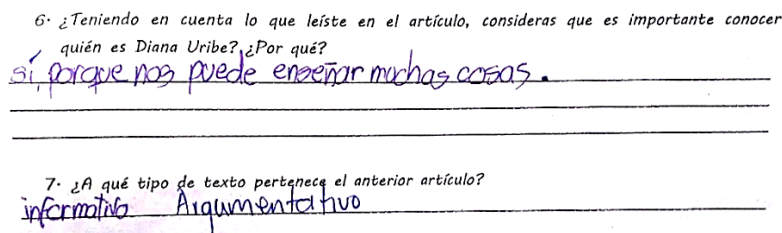 6. ¿Teniendo en cuenta lo que leíste en el artículo, consideras que es importante conocer
quién es Diana Uribe? ¿Por qué?
sí, porque nos puede enseñar muchas cosas.
7. ¿A qué tipo de texto pertenece el anterior artículo?
informativo Argumentativo